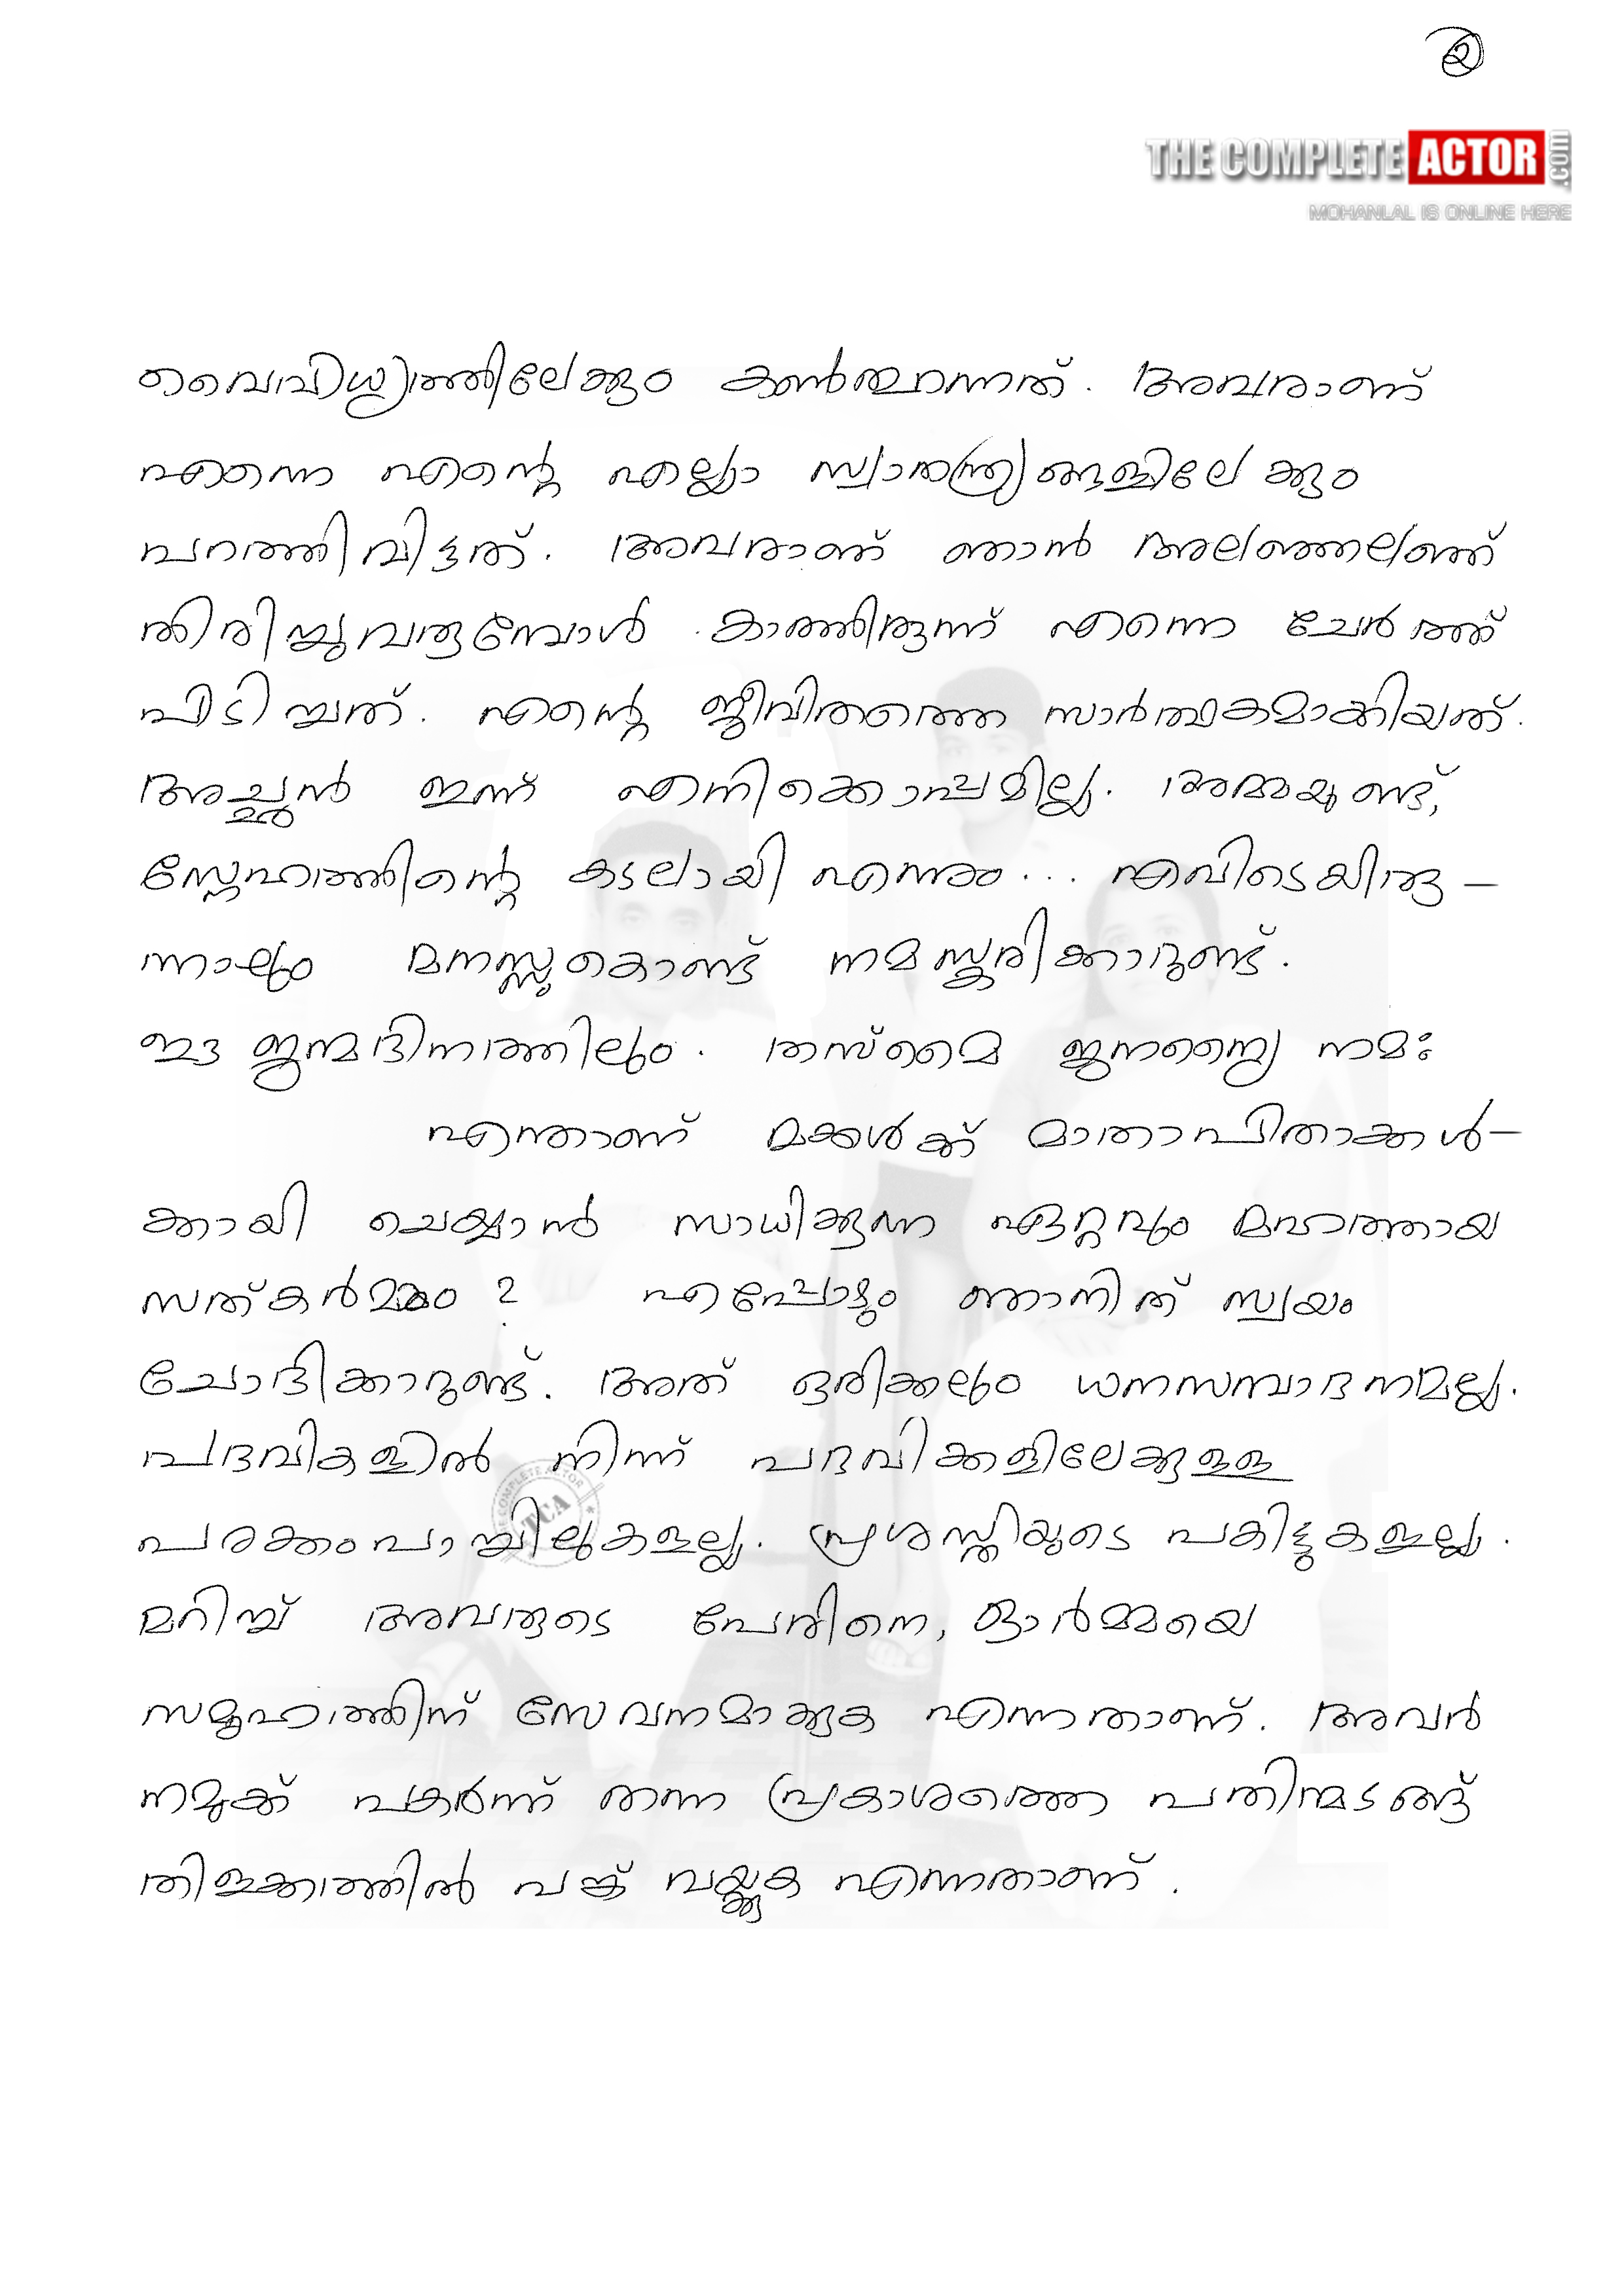 ②
THE COMPLETE ACTOR .com
MOHANLAL IS ONLINE HERE
വൈവിധ്യത്തിലേക്കും കൺതുറന്നത്. അവരാണ്
എന്നെ എന്റെ എല്ലാ സ്വാതന്ത്ര്യങ്ങളിലേക്കും
പറത്തിവിട്ടത്. അവരാണ് ഞാൻ അലഞ്ഞലഞ്ഞ്
തിരിച്ചുവരുമ്പോൾ കാത്തിരുന്ന് എന്നെ ചേർത്ത്
പിടിച്ചത്. എന്റെ ജീവിതത്തെ സാർത്ഥകമാക്കിയത്.
അച്ഛൻ ഇന്ന് എനിക്കൊപ്പമില്ല. അമ്മയുണ്ട്,
സ്നേഹത്തിന്റെ കടലായി എന്നും... എവിടെയിരു–
ന്നാലും മനസ്സുകൊണ്ട് നമസ്കരിക്കാറുണ്ട്.
ഈ ജന്മദിനത്തിലും. തസ്മൈ ജനന്യൈ നമഃ
എന്താണ് മക്കൾക്ക് മാതാപിതാക്കൾ–
ക്കായി ചെയ്യാൻ സാധിക്കുന്ന ഏറ്റവും മഹത്തായ
സത്കർമ്മം? എപ്പോഴും ഞാനിത് സ്വയം
ചോദിക്കാറുണ്ട്. അത് ഒരിക്കലും ധനസമ്പാദനമല്ല.
പദവികളിൽ നിന്ന് പദവിക്കളിലേക്കുള്ള
പരക്കംപാച്ചിലുകളല്ല. പ്രശസ്തിയുടെ പകിട്ടുകളല്ല.
മറിച്ച് അവരുടെ പേരിനെ, ഓർമ്മയെ
സമൂഹത്തിന് സേവനമാക്കുക എന്നതാണ്. അവർ
നമുക്ക് പകർന്ന് തന്ന പ്രകാശത്തെ പതിന്മടങ്ങ്
തിളക്കത്തിൽ പങ്ക് വയ്ക്കുക എന്നതാണ്.
COMPLETE ACTOR
TCA